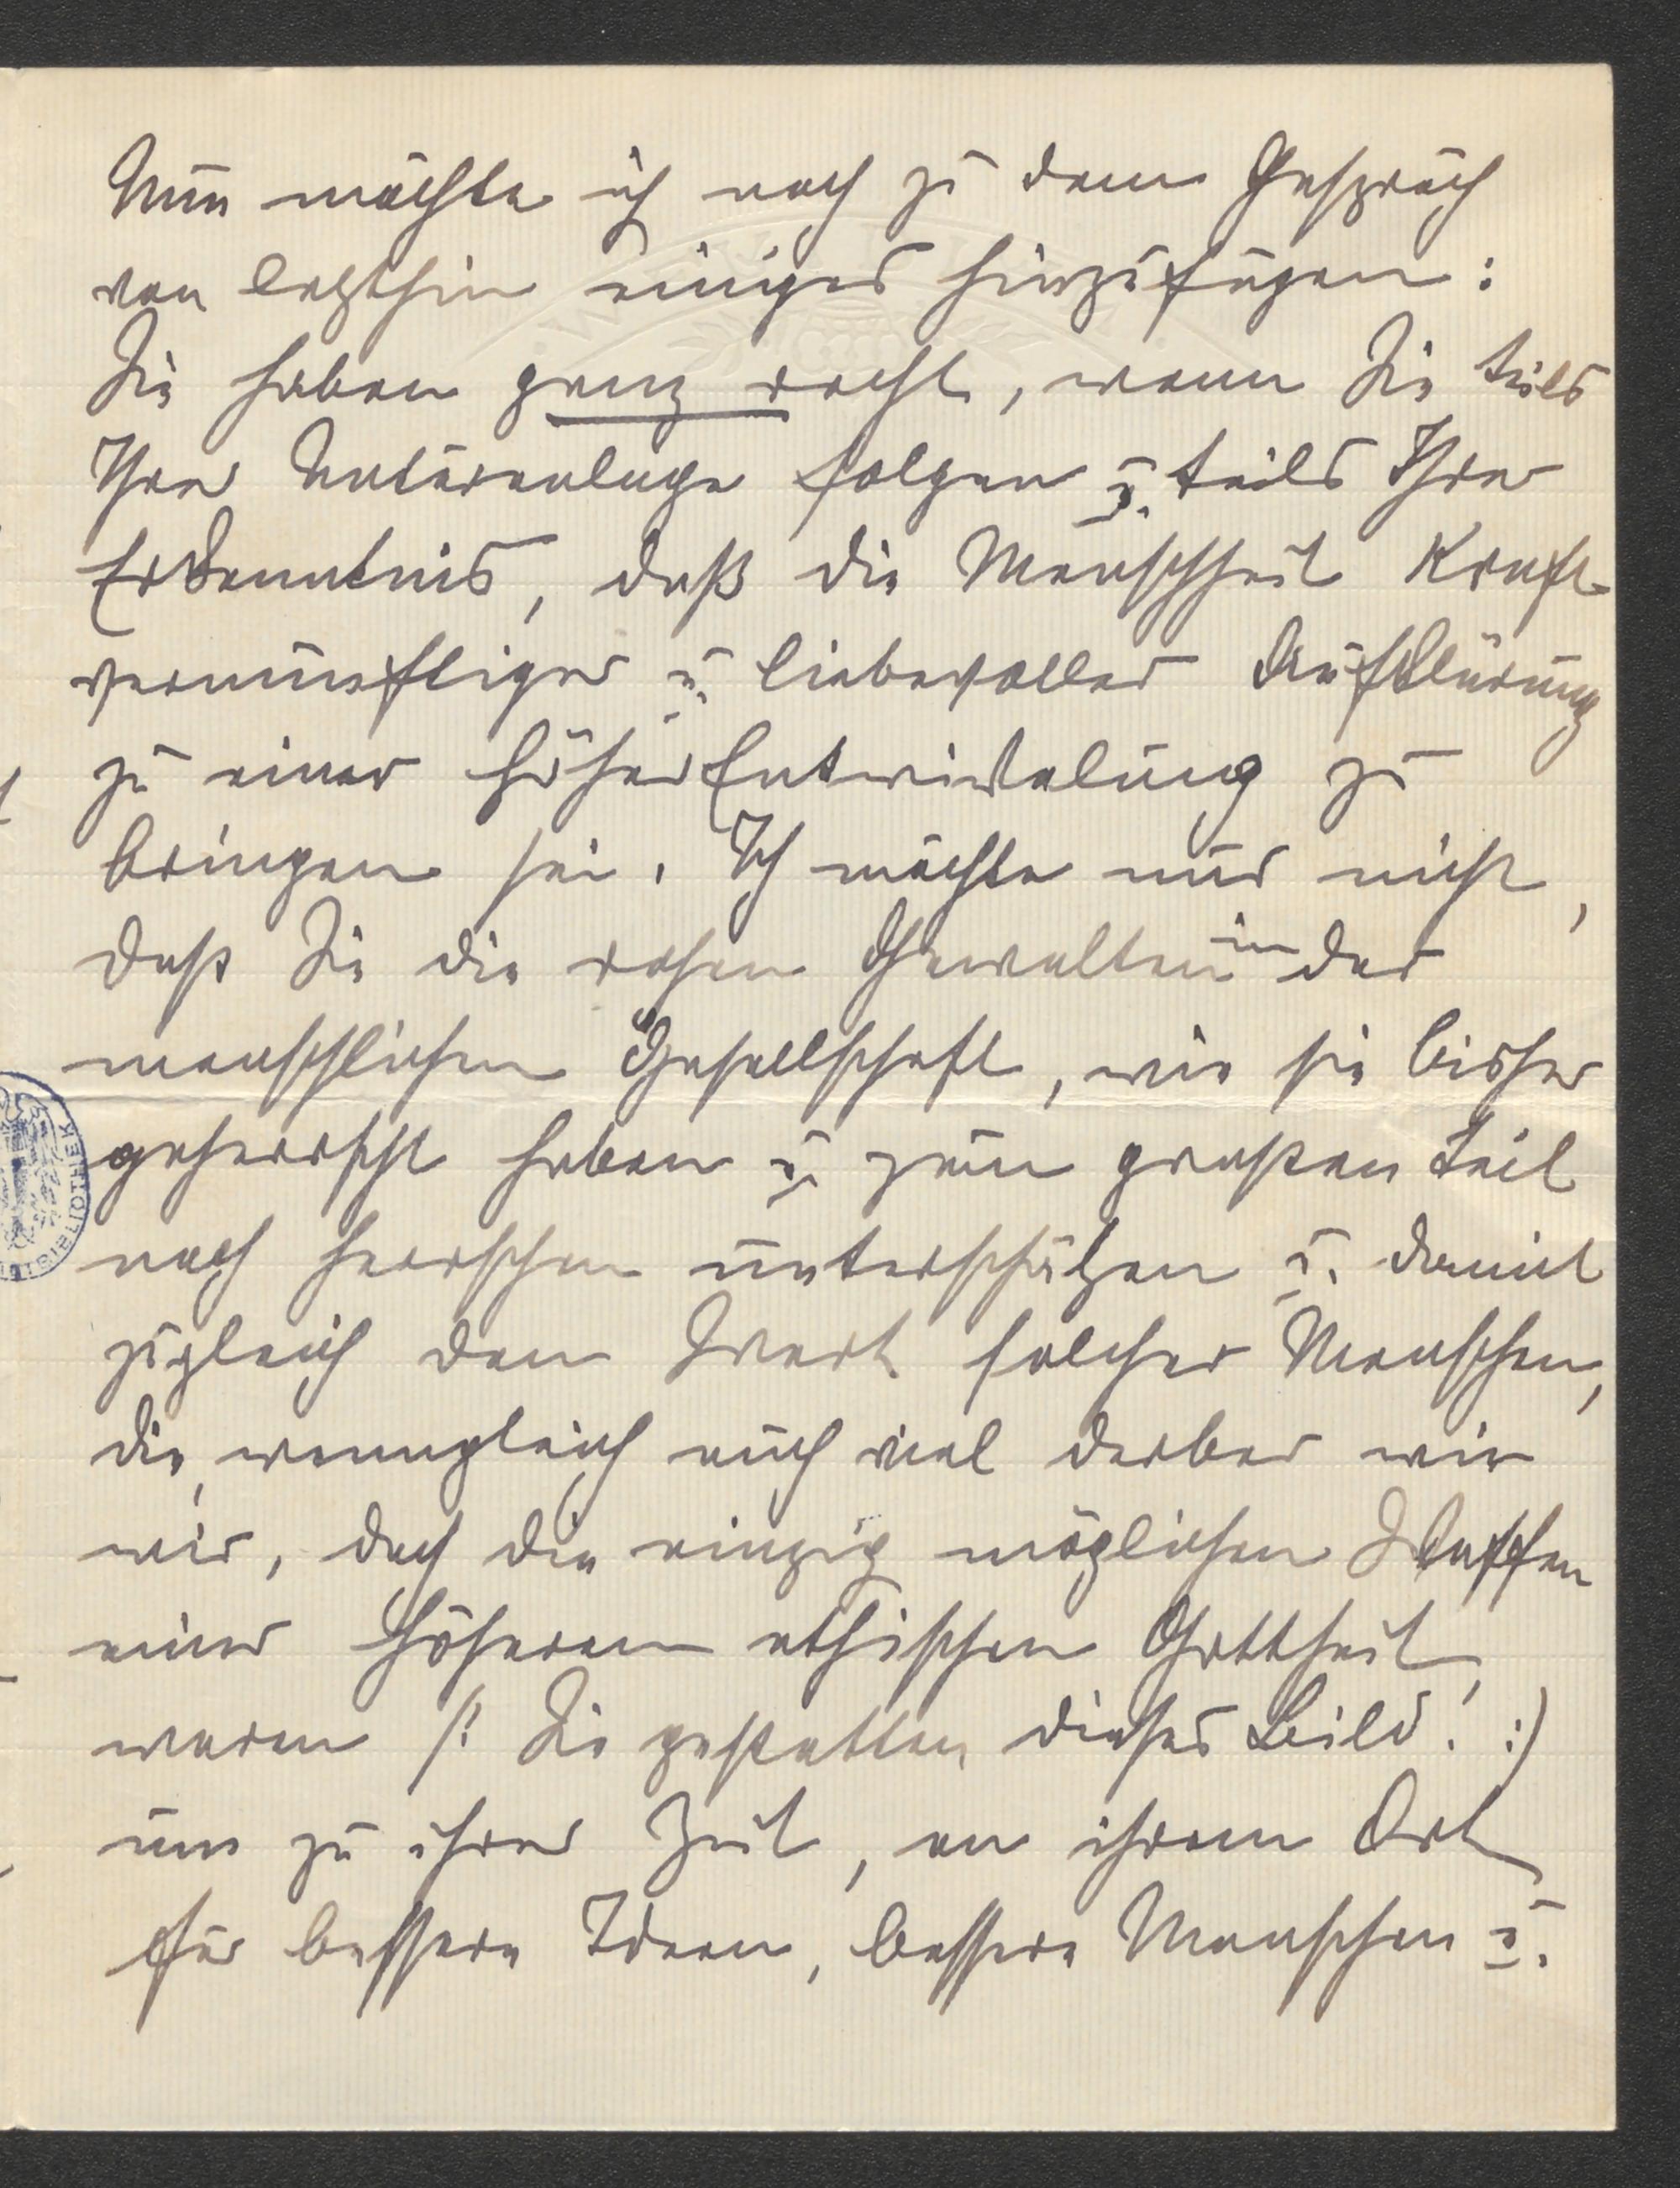 Nun möchte ich noch zu dem Gespräch
von letzthin einiges hinzufügen:
Sie haben ganz recht, wenn Sie teils
Ihrer Naturanlage folgen u. teils Ihrer
Erkenntnis, daß die Menschheit kraft
vernünftiger u. liebevoller Aufklärung
zu einer höher Entwickelung zu
bringen sei. Ich möchte nur nicht,
daß Sie die rohen Gewalten in der
menschlichen Gesellschaft, wie sie bisher
geherrscht haben u. zum großen Teil
noch herrschen unterschätzen u. damit
zugleich den Wert solcher Menschen,
die, wenngleich auch viel derber wie
wir, doch die einzig möglichen Waffen
einer höheren ethischen Gottheit
waren /: Sie gestatten dieses Bild! :)
um zu ihrer Zeit, an ihrem Ort
für bessere Ideen, bessere Menschen u.